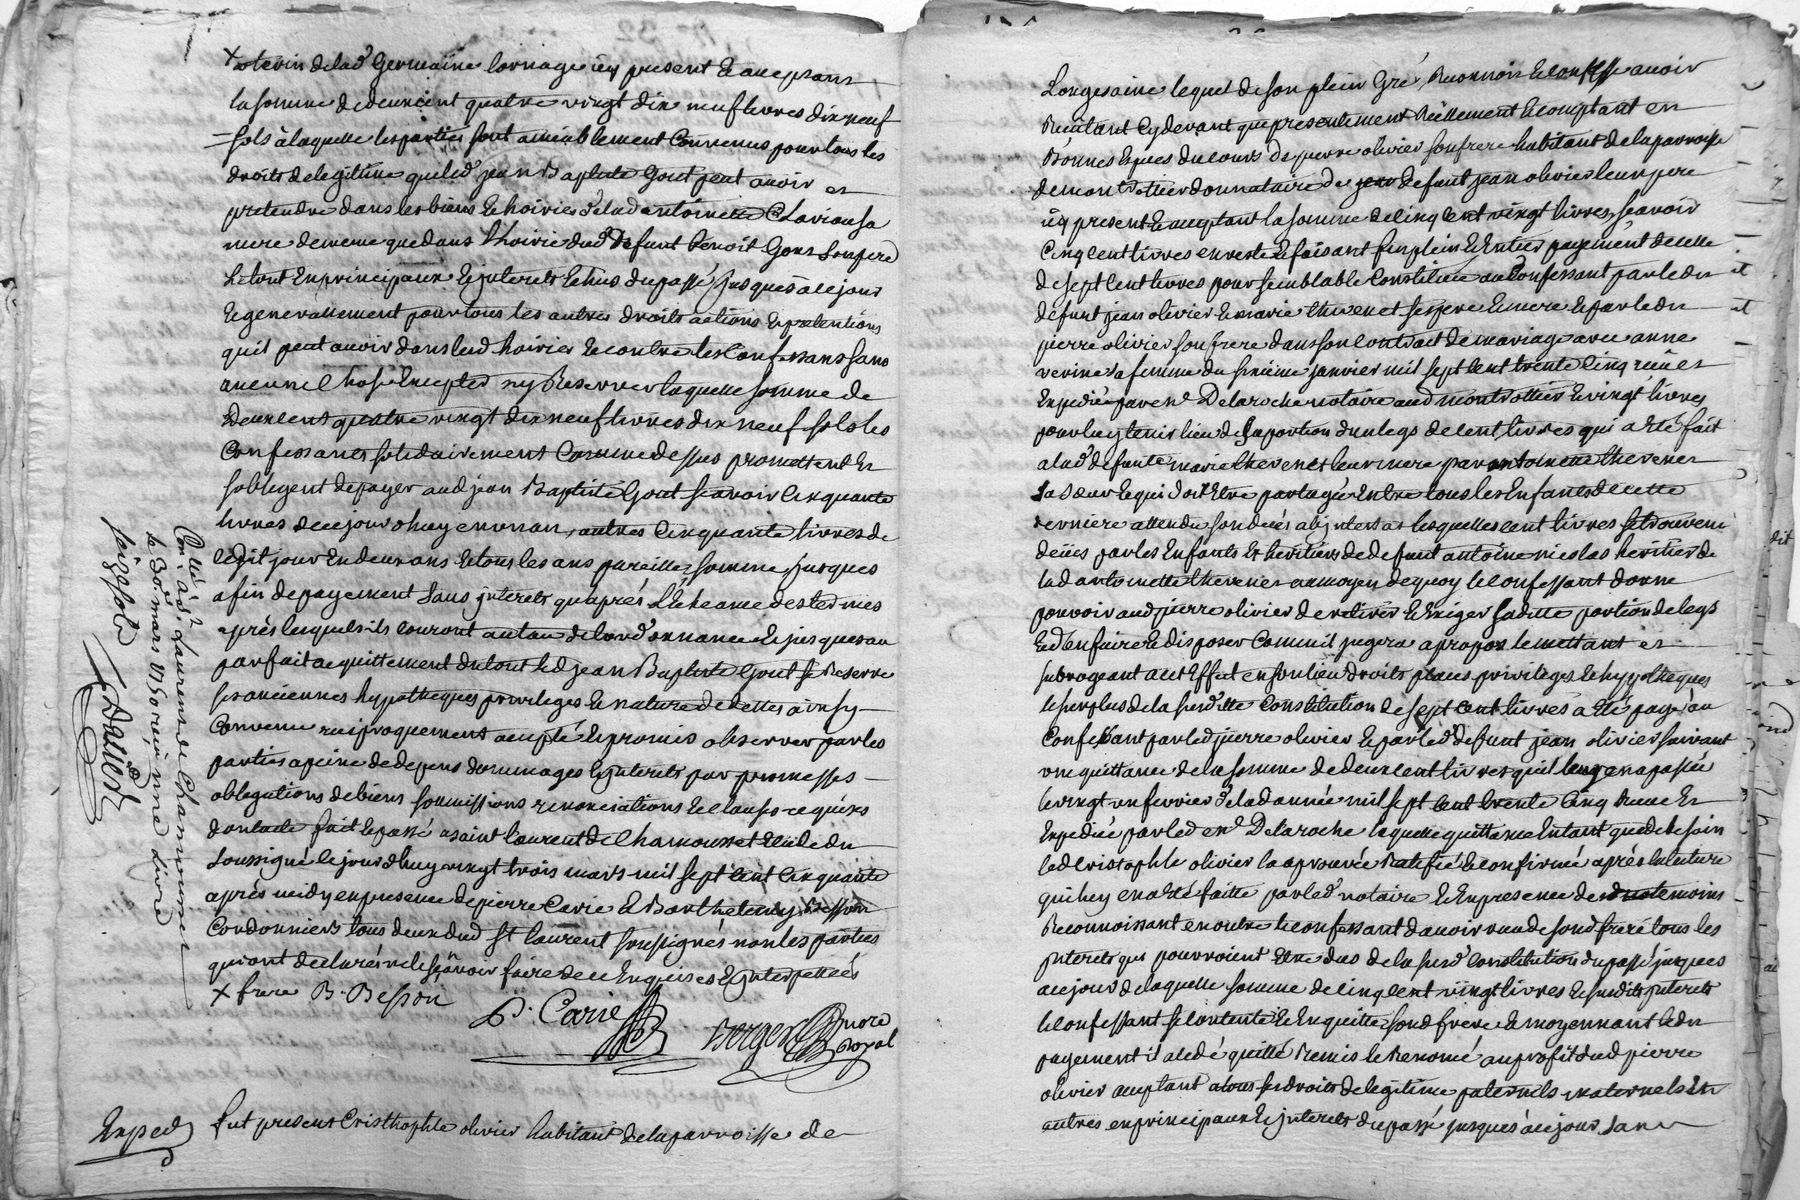 + uterin de lad Germaine Cornage icy present & acceptant
la somme de deux cent quatre vingt dix neuf livres dix neuf
sols à laquelle les parties sont amiablement Convenus pour tous les
droits de legitime que led jean Baptiste Gout peut avoir et
pretendre dans les biens & hoiries de lad antoinette
mere de meme que dans l'hoirie dud defunt benoit Gout son pere
le tout en principaux & interets echus du passé jusques à ce jour
& generallement pour tous les autres droits actions & pretentions
qu'il peut avoir dans lesd hoiries & contre les Confessants sans
aucune Chose Excepter ny Reserver laquelle somme de
deux cent quatre vingt dix neuf livres dix neuf sols les
Confessants solidairement Comme dessus promettent &
sobligent de payer aud jean Baptiste Gout scavoir Cinquante
livres de ce jourdhuy en un an, autres Cinquante livres de
cedit jour En deux ans & tous les ans pareille somme jusques
a fin de payement sans interets qu'aprés L'Echeance des termes
aprés lesquels ils couront au taux de lordonnance & jusques au
parfait acquittement du tout led jean Baptiste Gout se Reserve
ses anciennes hypotheques privileges & nature de dettes ainsy
Convenu reciproquement accepté & promis observer par les
parties a peine de depens dommages & interets par promesses
obligations de biens soumissions renonciations & clauses requises
dont acte fait & passé a saint Laurent de Chamousset Etude du
soussigné le jourdhuy vingt trois mars mil sept cent Cinquante
aprés midy en presence de pierre Carie & Barthelemy Besson
Cordonniers tous deux dud St Laurent soussignés non les parties
qui ont declaré ne le scavoir faire de ce Enquises & interpellées
+ frere B. Besson
P. Carie
Berger nore Royal
Con.lé à St Laurent de Chamousset
le 30e mars 1750 reçu
seize sols
Exped
Fut present Cristhophle olivier habitant de la parroisse de
Longesaine lequel de son plein Gré Reconnois & confesse avoir
Receu tant cy devant que presentement Rèellement & comptant en
Bonnes Especes du cours de pierre olivier son frere habitant de la parroisse
de montrottier donnataire de defunt jean olivier leur pere
icy present & acceptant la somme de Cinq Cent vingt livres, scavoir
Cinq cent livres en reste & faisant son plein & Entier payement de celle
de sept cent livres pour semblable Constituée au Confessant par led
defunt jean olivier & marie thevenet ses pere & mere & par led
pierre olivier son frere dans son contract de mariage avec anne
verine sa femme du sixième janvier mil sept cent trente cinq reçu et
Expedié par Me Delaroche notaire aud montrottier & vingt livres
pour luy tenir lieu de sa portion d'un legs de cent livres qui a eté fait
a lad defunte marie thevenet leur mere par antoinette thevenet
sa soeur & qui doit Etre partagée Entre tous les Enfants de cette
derniere attendu son decés abjntestat lesquelles cent livres se trouvent
deües par les Enfants & heritiers de defunt antoine nicolas heritier de
lad antoinette thevenet au moyen de quoy le confessant donne
pouvoir aud pierre olivier de retirer & Exiger sadite portion de legs
& d'en faire & disposer Comm'il jugera a propos le mettant et
subrogeant a cet Effect en son lieu droits places privileges & hypotheques
le surplus de la susditte Constitution de sept cent livres a eté payé au
Confessant par led pierre olivier & par led defunt jean olivier suivant
une quittance de la somme de deux cent livres qu'il leur en a passée
le vingt un fevrier de lad année mil sept cent trente Cinq Receue &
Expediée par led Me Delaroche laquelle quittance Entant que de besoin
led Cristophle olivier la aprouvée Ratifiée & confirmée aprés la lecture
qui luy en a eté faitte par led notaire & En presence des temoins
Reconnoissant en outre le confessant d'avoir receu de sond frere tous les
interets qui pouvoient etre dus de la susd constitution du passé jusques
a ce jour de laquelle somme de cinq cent vingt livres & susdits interets
le confessant se contente & En quitte sond frere & moyennant led
payement il a cedé quitté Remis & Renoncé au profit dud pierre
olivier acceptant a tous ses droits de legitime paternels maternels &
autres en principaux & interets du passé jusques à ce jour sans